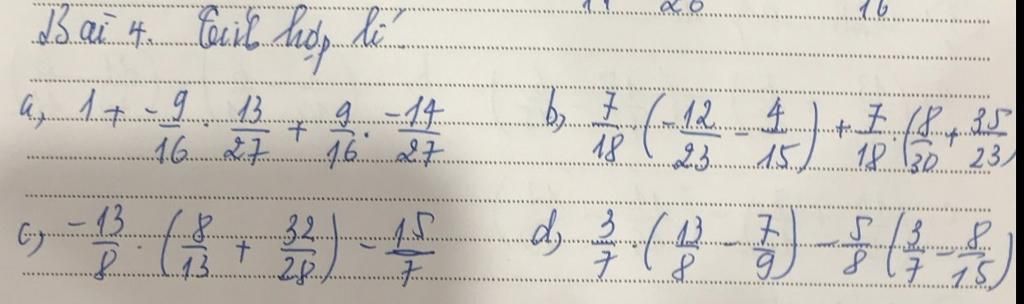 Bài 4. Tính hợp lí
a, 1 + -9/16 . 13/27 + 9/16 . -14/27
b, 7/18 (-12/23 - 4/15) + 7/18 . (8/30 + 35/23)
c, -13/8 . (8/13 + 32/28) - 15/7
d, 3/7 . (13/8 - 7/9) - 5/8 (3/7 - 8/15)